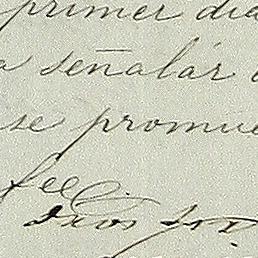 primer dia
señalár
se promue
fee